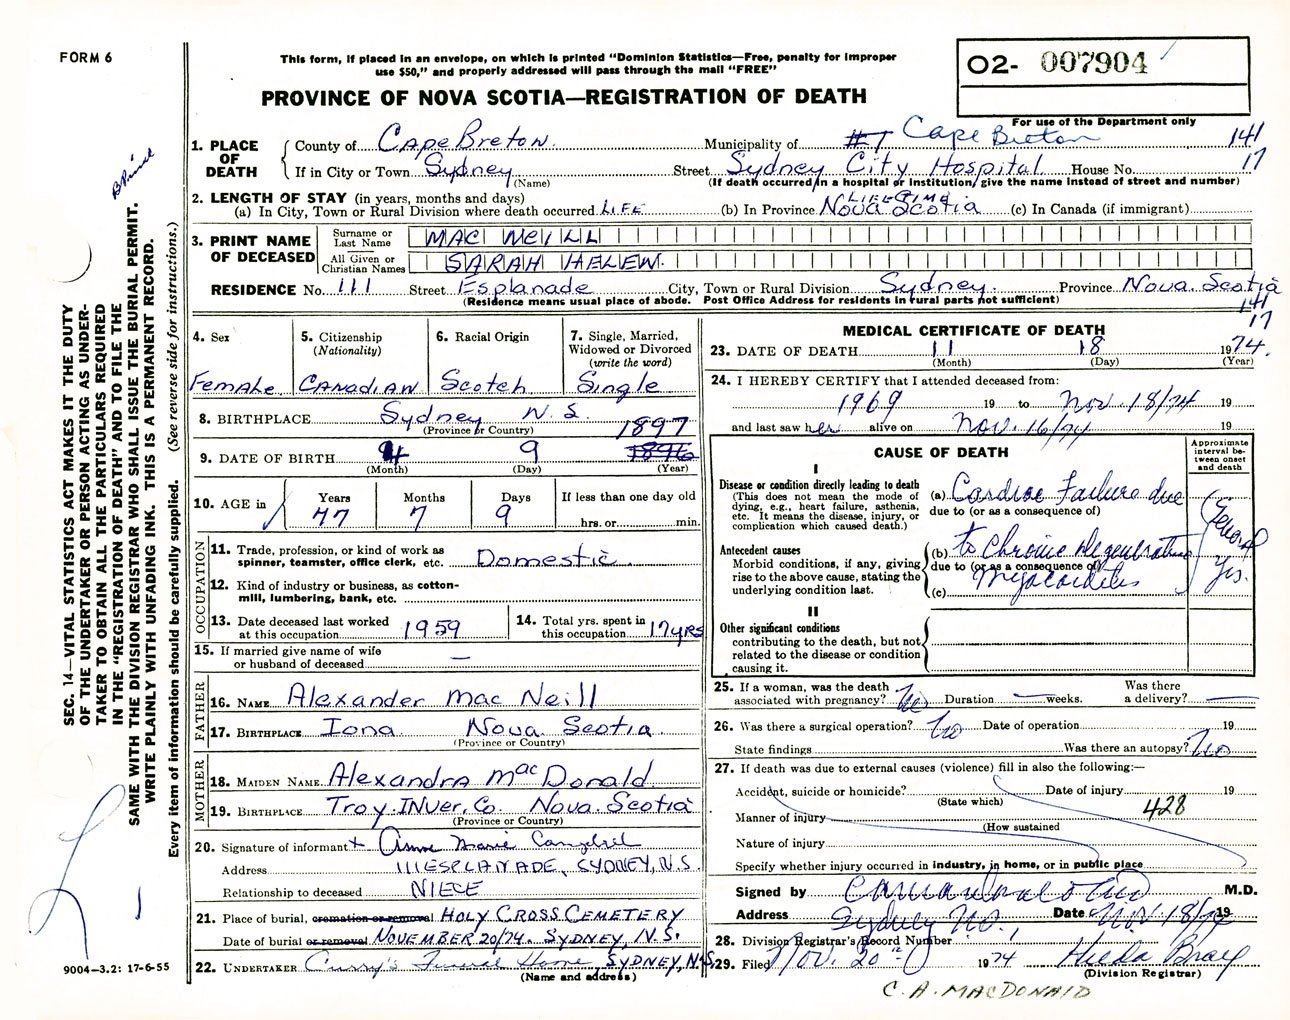 FORM 6
This form, if placed in an envelope, on which is printed "Dominion Statistics—Free, penalty for improper
use $50," and properly addressed will pass through the mail "FREE"
PROVINCE OF NOVA SCOTIA—REGISTRATION OF DEATH
O2- 007904
For use of the Department only
141
17
1. PLACE OF DEATH
County of Cape Breton. Municipality of #7 Cape Breton
If in City or Town Sydney Street Sydney City Hospital House No.
(Name) (If death occurred in a hospital or institution, give the name instead of street and number)
2. LENGTH OF STAY (in years, months and days)
LIFETIME
(a) In City, Town or Rural Division where death occurred LIFE (b) In Province Nova Scotia (c) In Canada (if immigrant)
3. PRINT NAME OF DECEASED
Surname or Last Name MAC NEILL
All Given or Christian Names SARAH HELEN.
RESIDENCE No. 111 Street Esplanade City, Town or Rural Division Sydney. Province Nova Scotia
(Residence means usual place of abode. Post Office Address for residents in rural parts not sufficient)
141
17
4. Sex
Female
5. Citizenship
(Nationality)
CANADIAN
6. Racial Origin
Scotch
7. Single, Married,
Widowed or Divorced
(write the word)
Single
8. BIRTHPLACE Sydney N.S.
(Province or Country)
1897
9. DATE OF BIRTH 4 9 1896
(Month) (Day) (Year)
10. AGE in
Years Months Days If less than one day old
77 7 9 hrs. or min.
OCCUPATION
11. Trade, profession, or kind of work as
spinner, teamster, office clerk, etc. Domestic
12. Kind of industry or business, as cotton-
mill, lumbering, bank, etc.
13. Date deceased last worked
at this occupation 1959
14. Total yrs. spent in
this occupation 17 yrs
15. If married give name of wife
or husband of deceased —
FATHER
16. NAME Alexander Mac Neill
17. BIRTHPLACE Iona Nova Scotia
(Province or Country)
MOTHER
18. MAIDEN NAME Alexandra MacDonald
19. BIRTHPLACE Troy, INver. Co. Nova Scotia
(Province or Country)
20. Signature of informant x Anne Marie Campbell
Address 111 ESPLANADE, SYDNEY, N.S.
Relationship to deceased NIECE
21. Place of burial, cremation or removal HOLY CROSS CEMETERY
Date of burial or removal NOVEMBER 20/74. SYDNEY, N.S.
22. UNDERTAKER Curry's Funeral Home SYDNEY, N.S.
(Name and address)
MEDICAL CERTIFICATE OF DEATH
23. DATE OF DEATH 11 18 1974.
(Month) (Day) (Year)
24. I HEREBY CERTIFY that I attended deceased from:
1969 19 to Nov. 18/74 19
and last saw her alive on Nov. 16/74 19
CAUSE OF DEATH
Approximate
interval be-
tween onset
and death
I
Disease or condition directly leading to death
(This does not mean the mode of
dying, e.g., heart failure, asthenia,
etc. It means the disease, injury, or
complication which caused death.)
(a) Cardiac Failure due
due to (or as a consequence of)
Antecedent causes
Morbid conditions, if any, giving
rise to the above cause, stating the
underlying condition last.
(b) to Chronic degenerative
due to (or as a consequence of)
myocarditis
(c)
Several
yrs.
II
Other significant conditions
contributing to the death, but not
related to the disease or condition
causing it.
25. If a woman, was the death
associated with pregnancy? No Duration — weeks. Was there
a delivery? —
26. Was there a surgical operation? No Date of operation 19
State findings Was there an autopsy? No
27. If death was due to external causes (violence) fill in also the following:—
Accident, suicide or homicide? Date of injury 19
(State which)
428
Manner of injury
(How sustained
Nature of injury
Specify whether injury occurred in industry, in home, or in public place
Signed by M.D.
Address Sydney N.S., Date Nov 18/74 19
28. Division Registrar's Record Number
29. Filed Nov. 20th 1974 Hilda Bray
(Division Registrar)
C. A. MACDONALD
SEC. 14—VITAL STATISTICS ACT MAKES IT THE DUTY
OF THE UNDERTAKER OR PERSON ACTING AS UNDER-
TAKER TO OBTAIN ALL THE PARTICULARS REQUIRED
IN THE "REGISTRATION OF DEATH" AND TO FILE THE
SAME WITH THE DIVISION REGISTRAR WHO SHALL ISSUE THE BURIAL PERMIT.
WRITE PLAINLY WITH UNFADING INK. THIS IS A PERMANENT RECORD.
Every item of information should be carefully supplied. (See reverse side for instructions.)
9004—3.2: 17-6-55